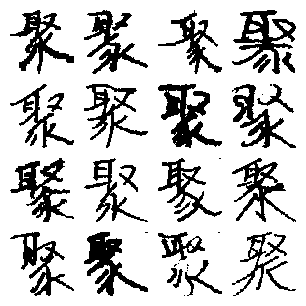 聚聚聚聚
聚聚聚聚
聚聚聚聚
聚聚聚聚